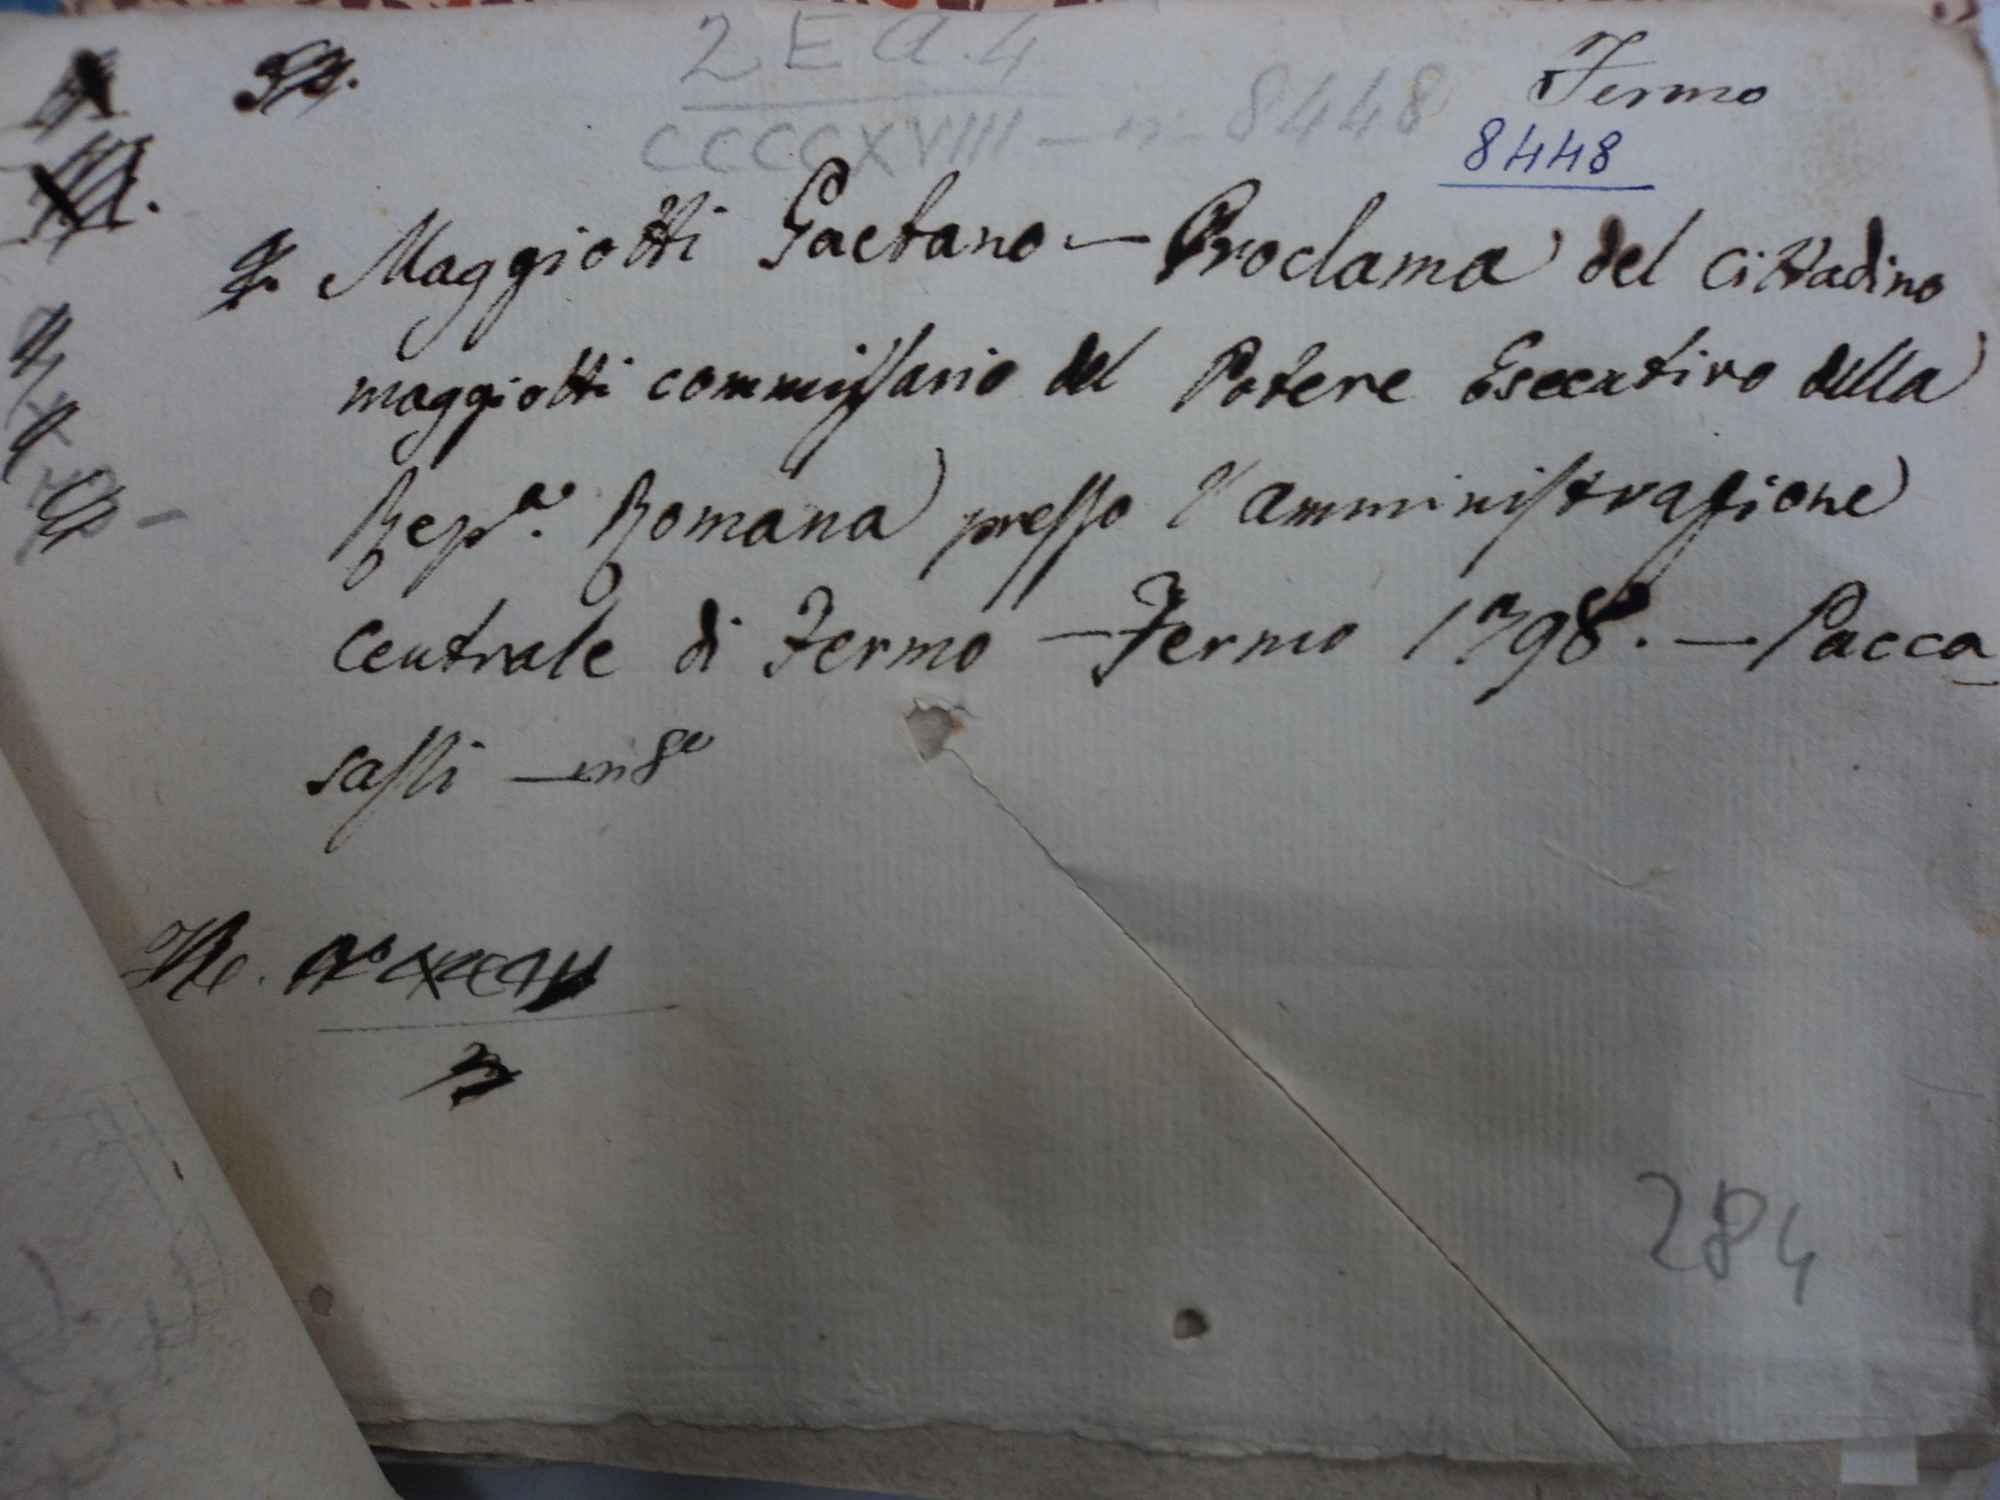 2 E a. 4
CCCCXVIII — n. 8448
Fermo
8448
Maggiotti Gaetano — Proclama del cittadino
maggiotti commissario del Potere Esecutivo della
Rep.a Romana presso l'amministrazione
centrale di Fermo — Fermo 1798. — Pacca
sassi — in 8o
284